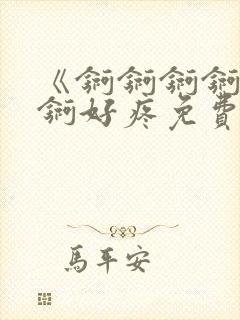 《锕锕锕锕
锕好疼免費
馬平安